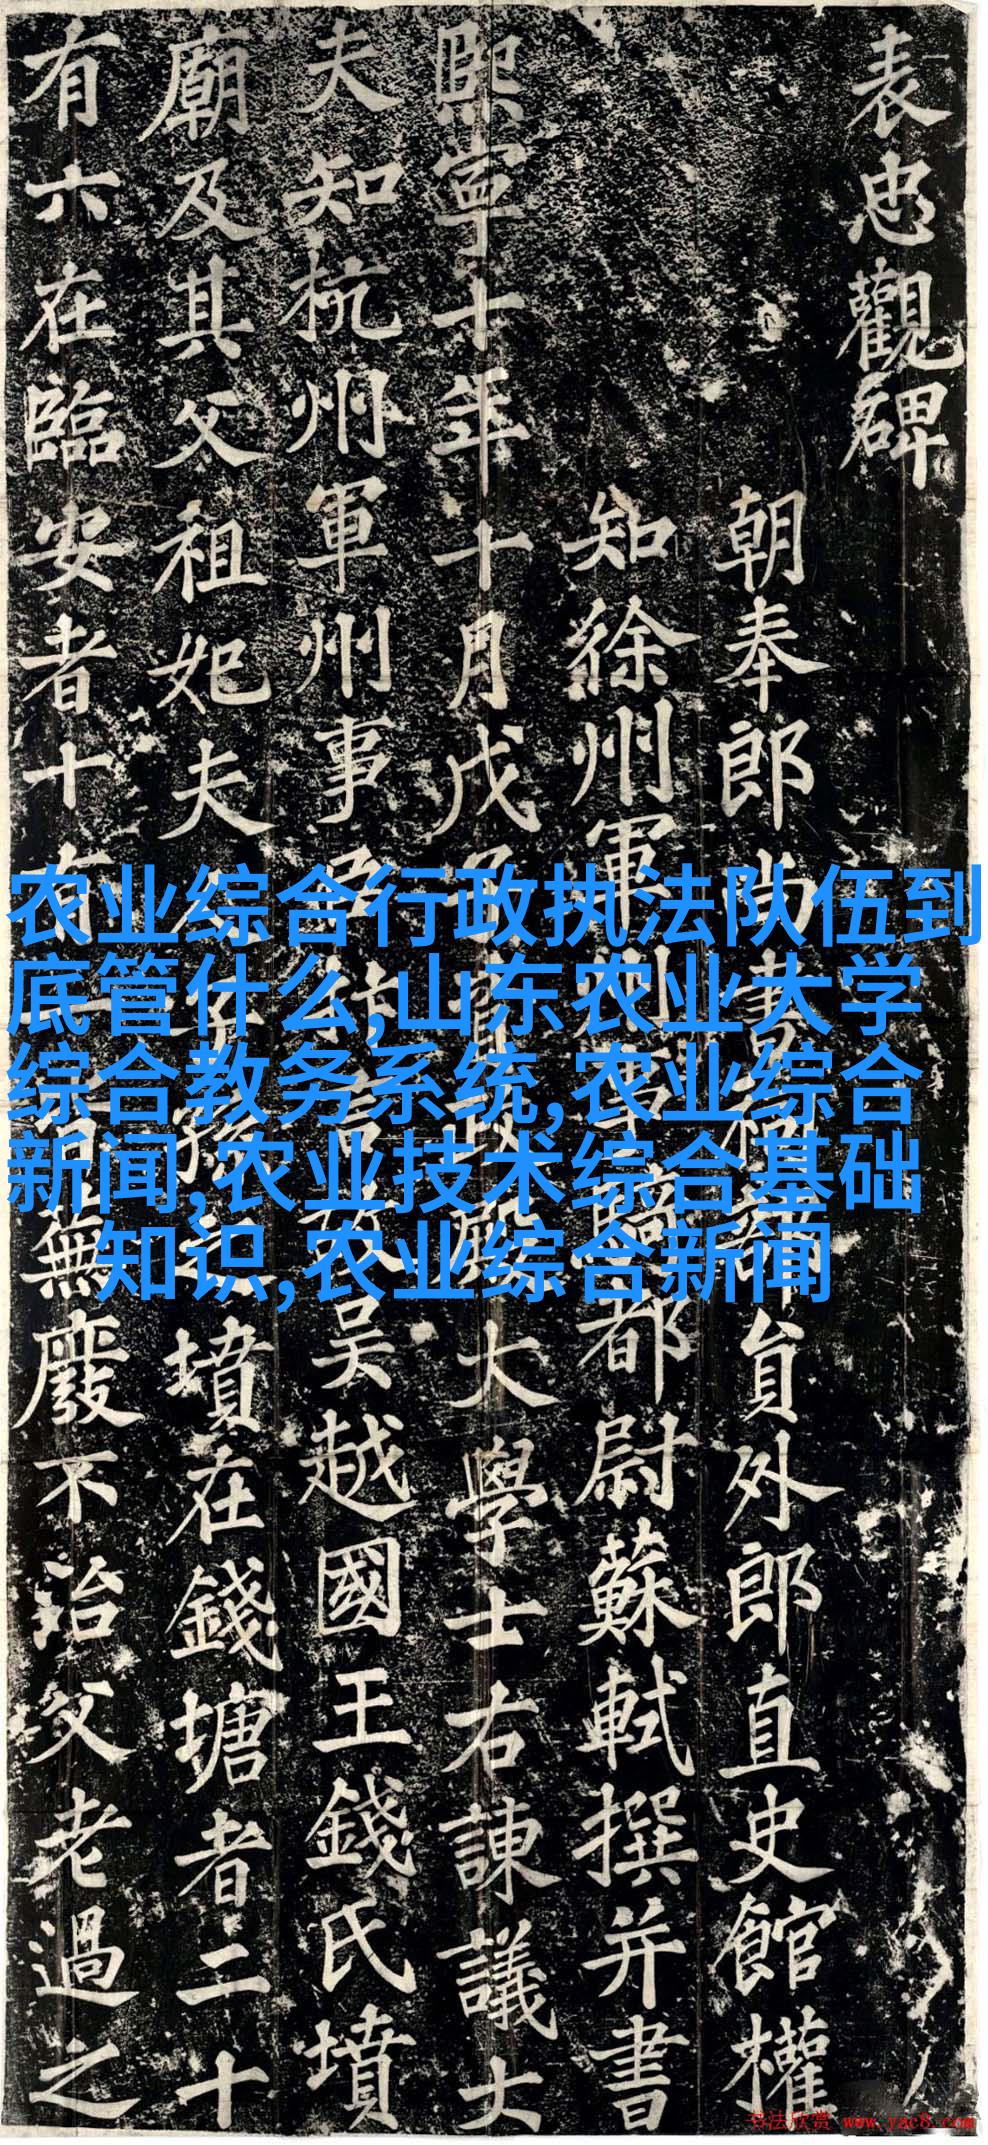 表忠觀碑
朝奉郎尚書祠部貟外郎直史館權
知徐州軍州事騎都尉蘇軾撰并書
熙寧十年十月戊子資政殿大學士右諫議大
夫知杭州軍州事臣抃言故吴越國王錢氏墳
廟及其父祖妃夫人子孫之墳在錢塘者二十
有六在臨安者十有一皆蕪廢不治父老過之
农业综合行政执法队伍到
底管什么,山东农业大学
综合教务系统,农业综合
新闻,农业技术综合基础
知识,农业综合新闻
书法欣赏 www.yac8.com